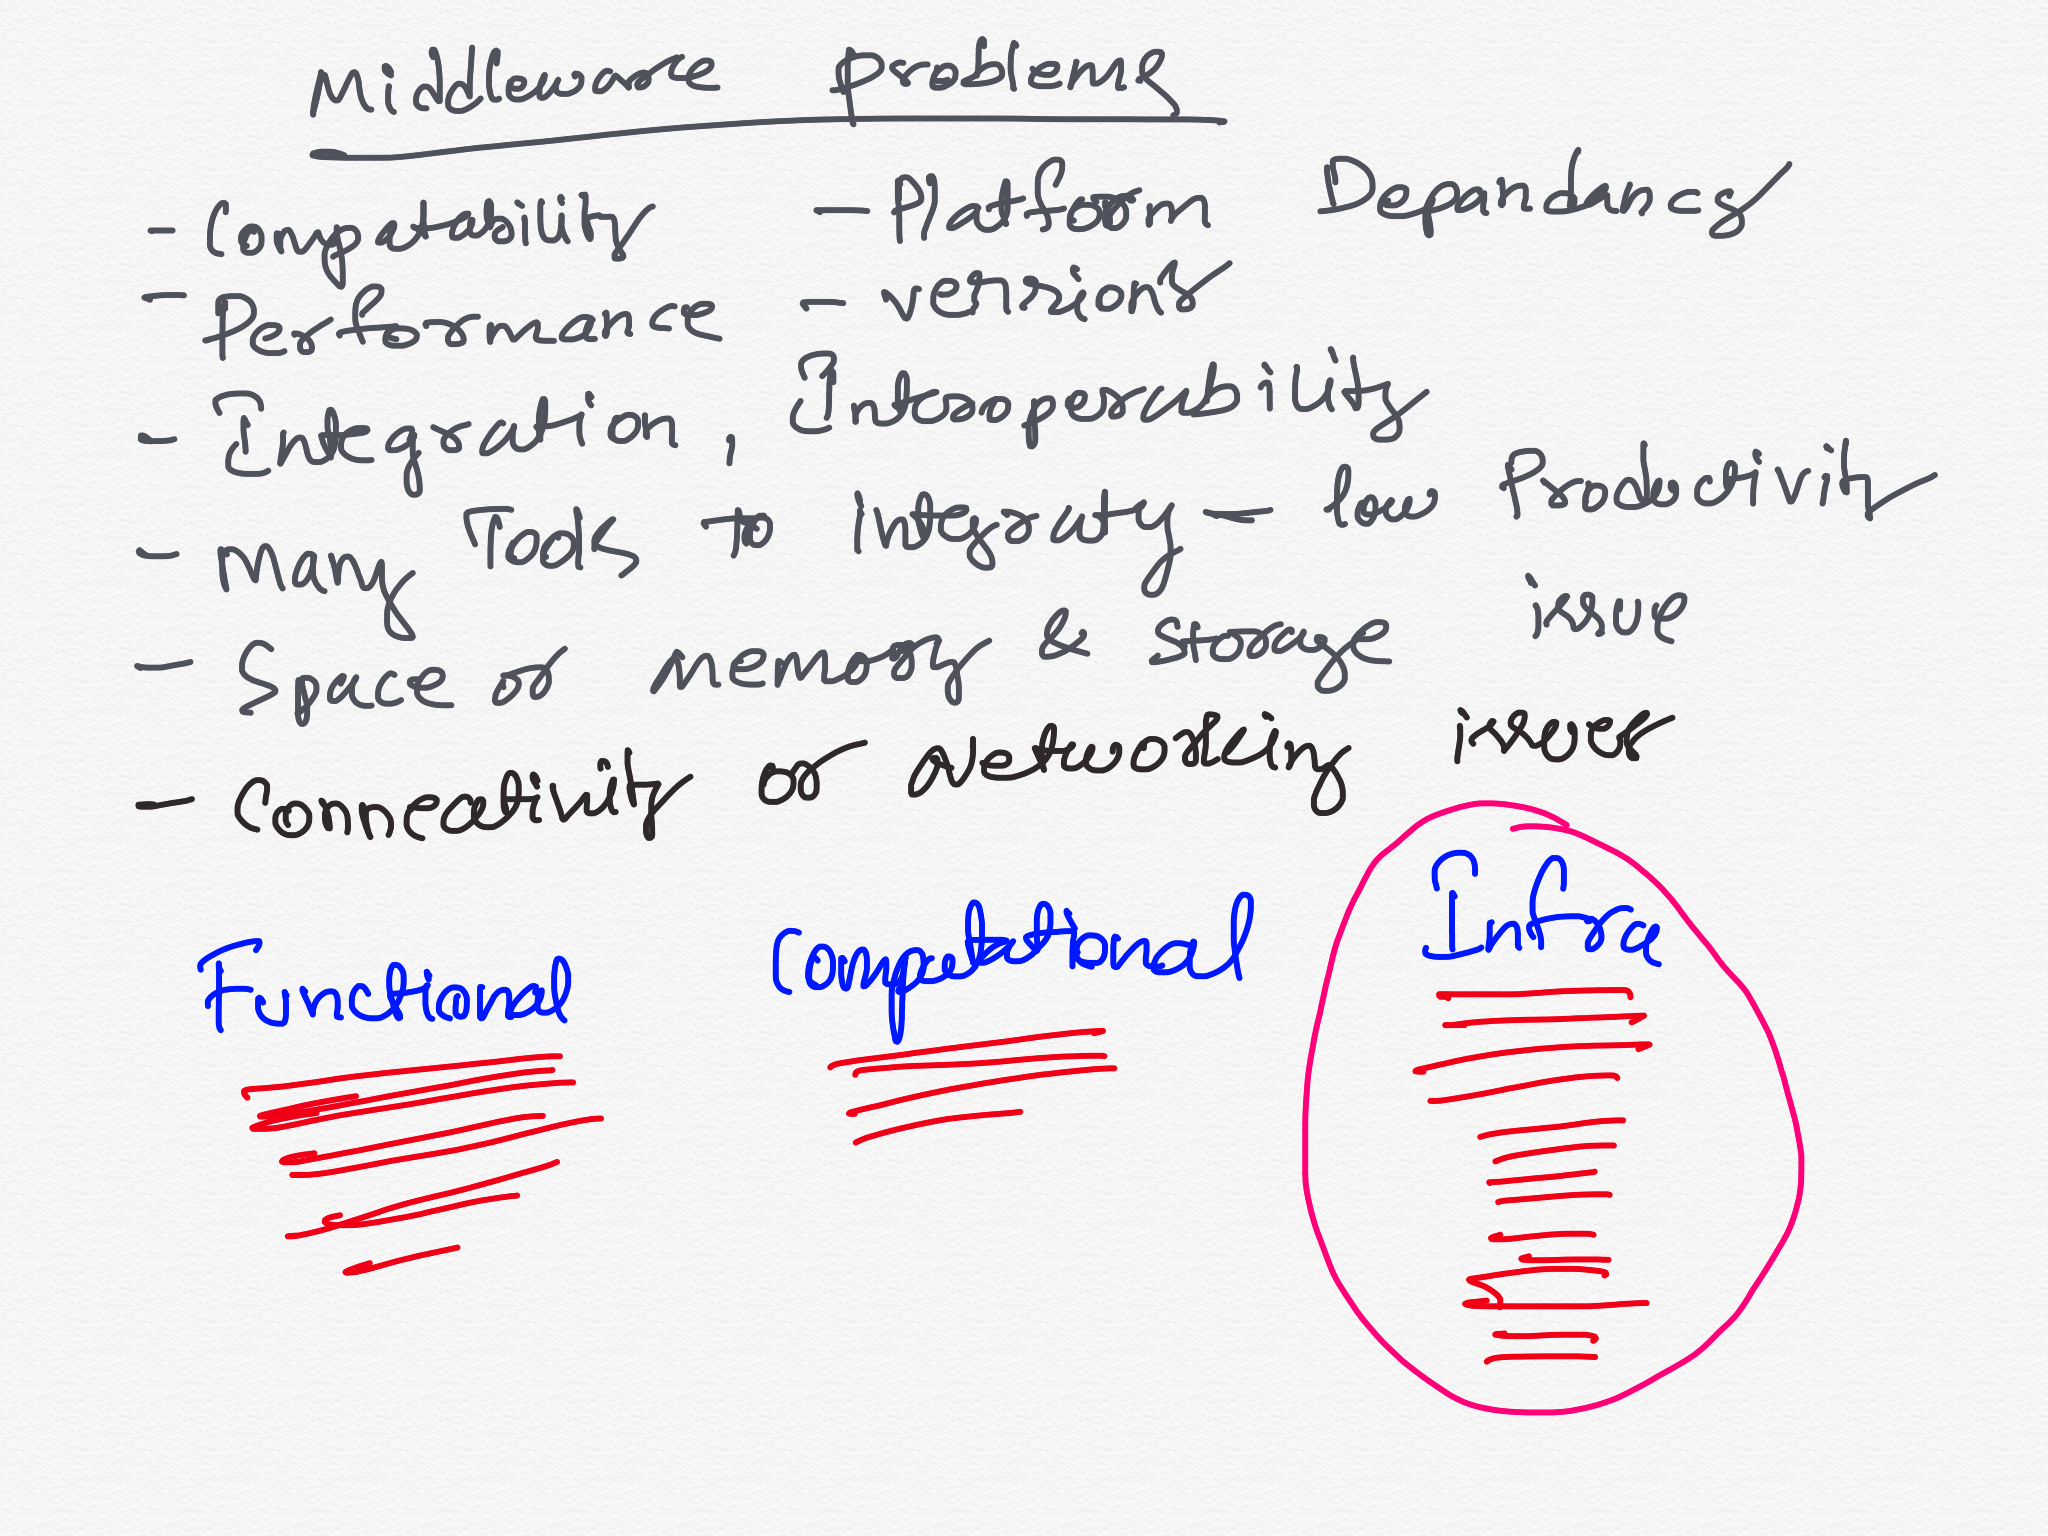 Middleware Problems
- Compatability - Platform Depandancy
- Performance - versions
- Integration, Interoperability
- Many Tools to integraty - low Productivity
- Space or memory & storage issue
- Conneativity or Networking issues
Functional Computational Infra